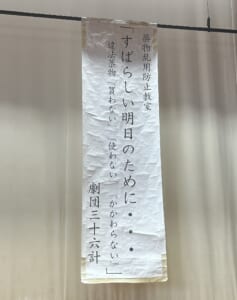 薬物乱用防止教室
「すばらしい明日のために・・・
違法薬物「買わない」「使わない」「かかわらない」」
劇団三十六計